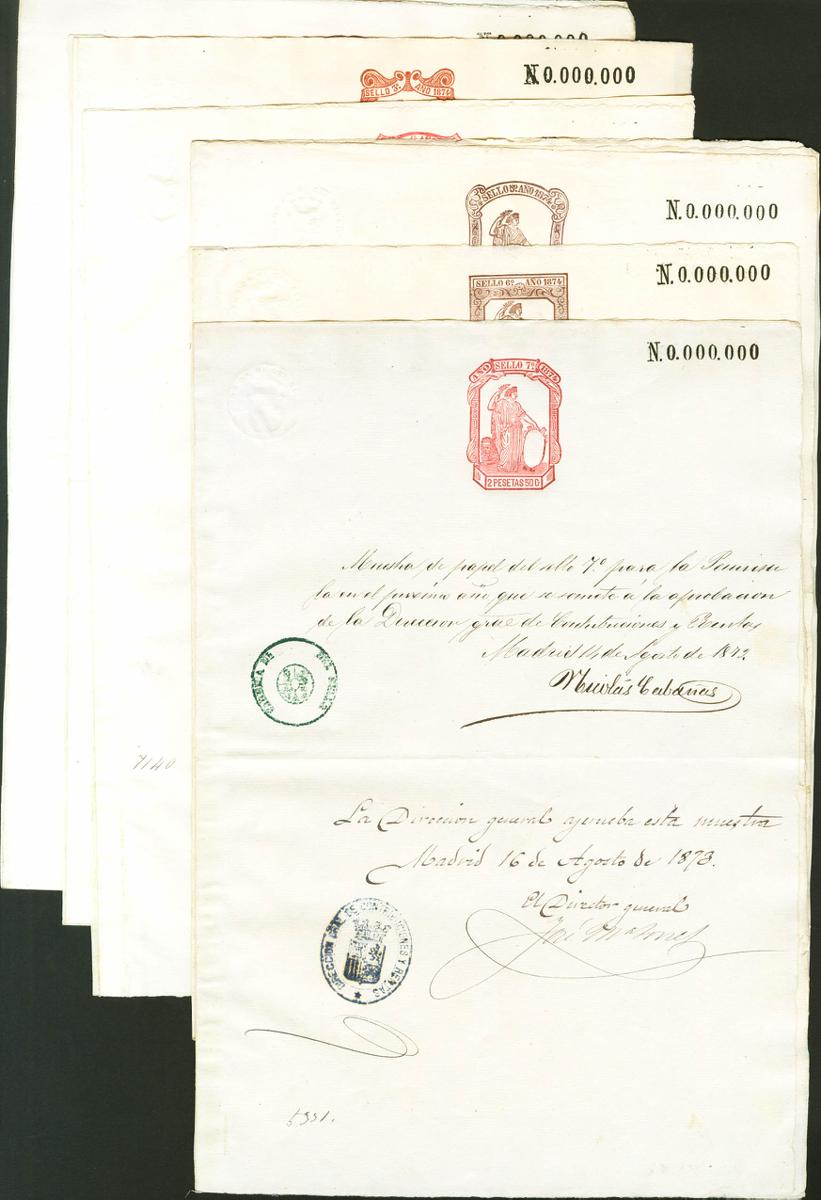 0.000.000
N.0.000.000
SELLO 3º AÑO 1874
N.0.000.000
SELLO 5º AÑO 1874
N.0.000.000
SELLO 6º AÑO 1874
N.0.000.000
AÑO SELLO 7º 1874
2 PESETAS 50 C.
Muestra de papel del sello 7º para la Peninsu
la en el proximo año que se somete á la aprobacion
de la Direccion gral de Contribuciones y Rentas
Madrid 14 de Agosto de 1873.
Nicolás Cabañas
7140
La Dirección general aprueba esta muestra
Madrid 16 de Agosto de 1873.
El Director general
José Mª
DIRECCION GRAL DE CONTRIBUCIONES Y RENTAS
5331.